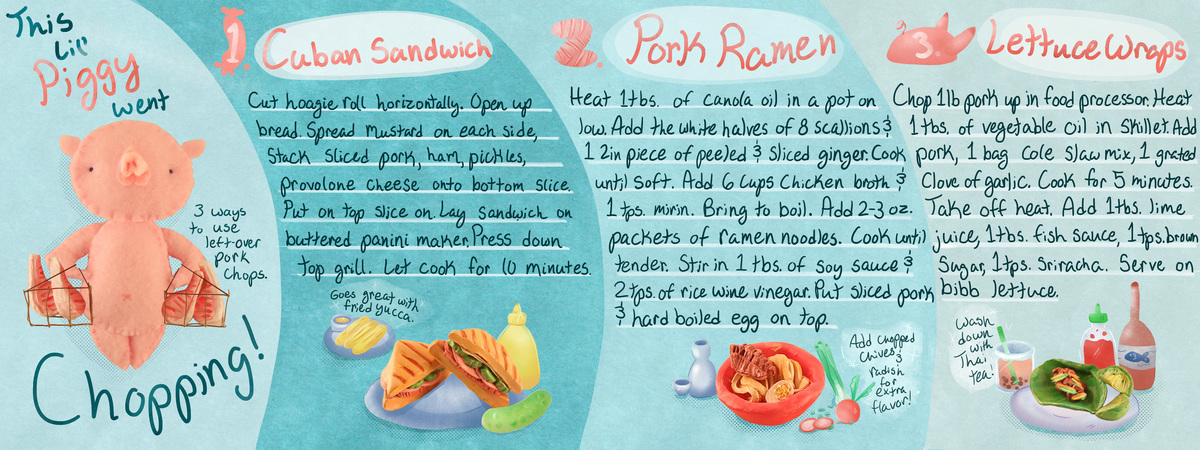 This
Lil'
Piggy
went
3 ways
to use
left-over
pork
chops.
Chopping!
1
Cuban Sandwich
Cut hoagie roll horizontally. Open up
bread. Spread mustard on each side,
Stack sliced pork, ham, pickles,
provolone cheese onto bottom slice.
Put on top slice on. Lay sandwich on
buttered panini maker. Press down
top grill. Let cook for 10 minutes.
Goes great with
fried yucca.
2.
Pork Ramen
Heat 1 tbs. of canola oil in a pot on
low. Add the white halves of 8 scallions &
1 2in piece of peeled & sliced ginger. Cook
until soft. Add 6 cups chicken broth &
1 tps. mirin. Bring to boil. Add 2-3 oz.
packets of ramen noodles. Cook until
tender. Stir in 1 tbs. of soy sauce &
2 tps. of rice wine vinegar. Put sliced pork
& hard boiled egg on top.
Add chopped
chives &
radish
for
extra
flavor!
3.
Lettuce Wraps
Chop 1lb pork up in food processor. Heat
1 tbs. of vegetable oil in skillet. Add
pork, 1 bag cole slaw mix, 1 grated
clove of garlic. Cook for 5 minutes.
Take off heat. Add 1 tbs. lime
juice, 1 tbs. fish sauce, 1 tps. brown
sugar, 1 tps. sriracha. Serve on
bibb lettuce.
Wash
down
with
Thai
tea!